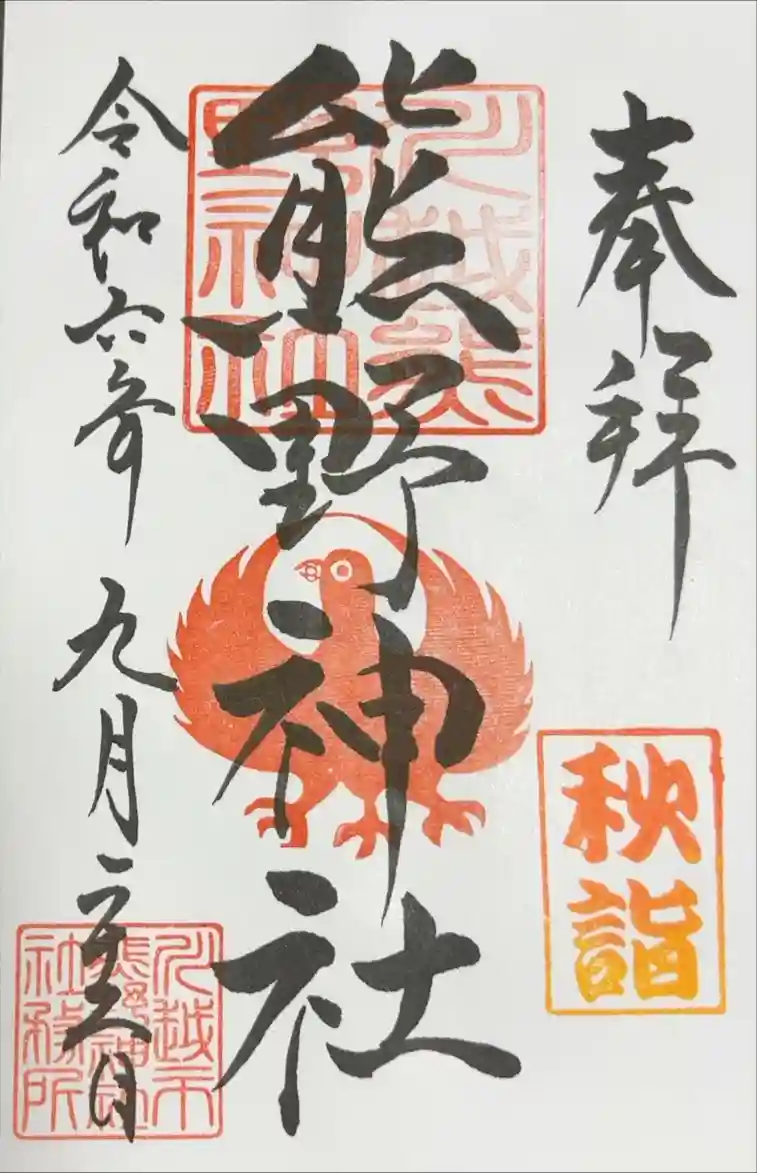 奉拝
秋詣
熊野神社
川越熊
野神社
令和六年九月二十六日
川越市
熊野神社
社務所